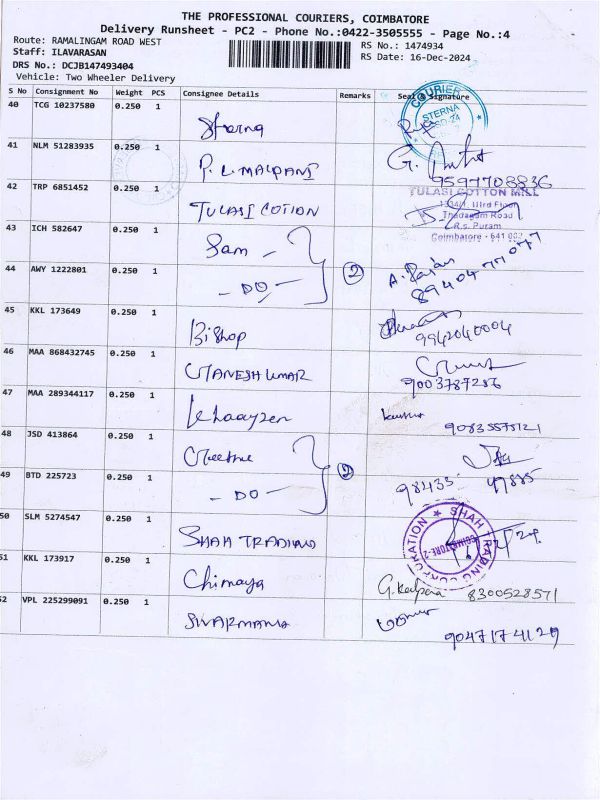 THE PROFESSIONAL COURIERS, COIMBATORE
Delivery Runsheet - PC2 - Phone No.:0422-3505555 - Page No.:4
Route: RAMALINGAM ROAD WEST
RS No.: 1474934
Staff: ILAVARASAN
RS Date: 16-Dec-2024
DRS No.: DCJB147493404
Vehicle: Two Wheeler Delivery
S No Consignment No Weight PCS Consignee Details Remarks Seal & Signature
40 TCG 10237580 0.250 1
COURIER
STERNA
Sterna
41 NLM 51283935 0.250 1
P. L. MALPANI
9597708836
42 TRP 6851452 0.250 1
TULASI COTTON MILL
IIIrd Floor
Thadagam Road
R.s. Puram
Coimbatore - 641 002
TULASI COTION
43 ICH 582647 0.250 1
Sam
44 AWY 1222801 0.250 1
- DO -
2
A. Rajan
8940477077
45 KKL 173649 0.250 1
Bishop
9942040004
46 MAA 868432745 0.250 1
GANESH KUMAR
9003787286
47 MAA 289344117 0.250 1
Khaayzen
90835575121
48 JSD 413864 0.250 1
Geethe
49 BTD 225723 0.250 1
- DO -
2
98435 47885
50 SLM 5274547 0.250 1
SHAH TRADING CORPORATION
COIMBATORE-2
SHAH TRADING
51 KKL 173917 0.250 1
Chimaya
G. Kalpana 8300528571
52 VPL 225299091 0.250 1
SIVARMANIA
9047174129